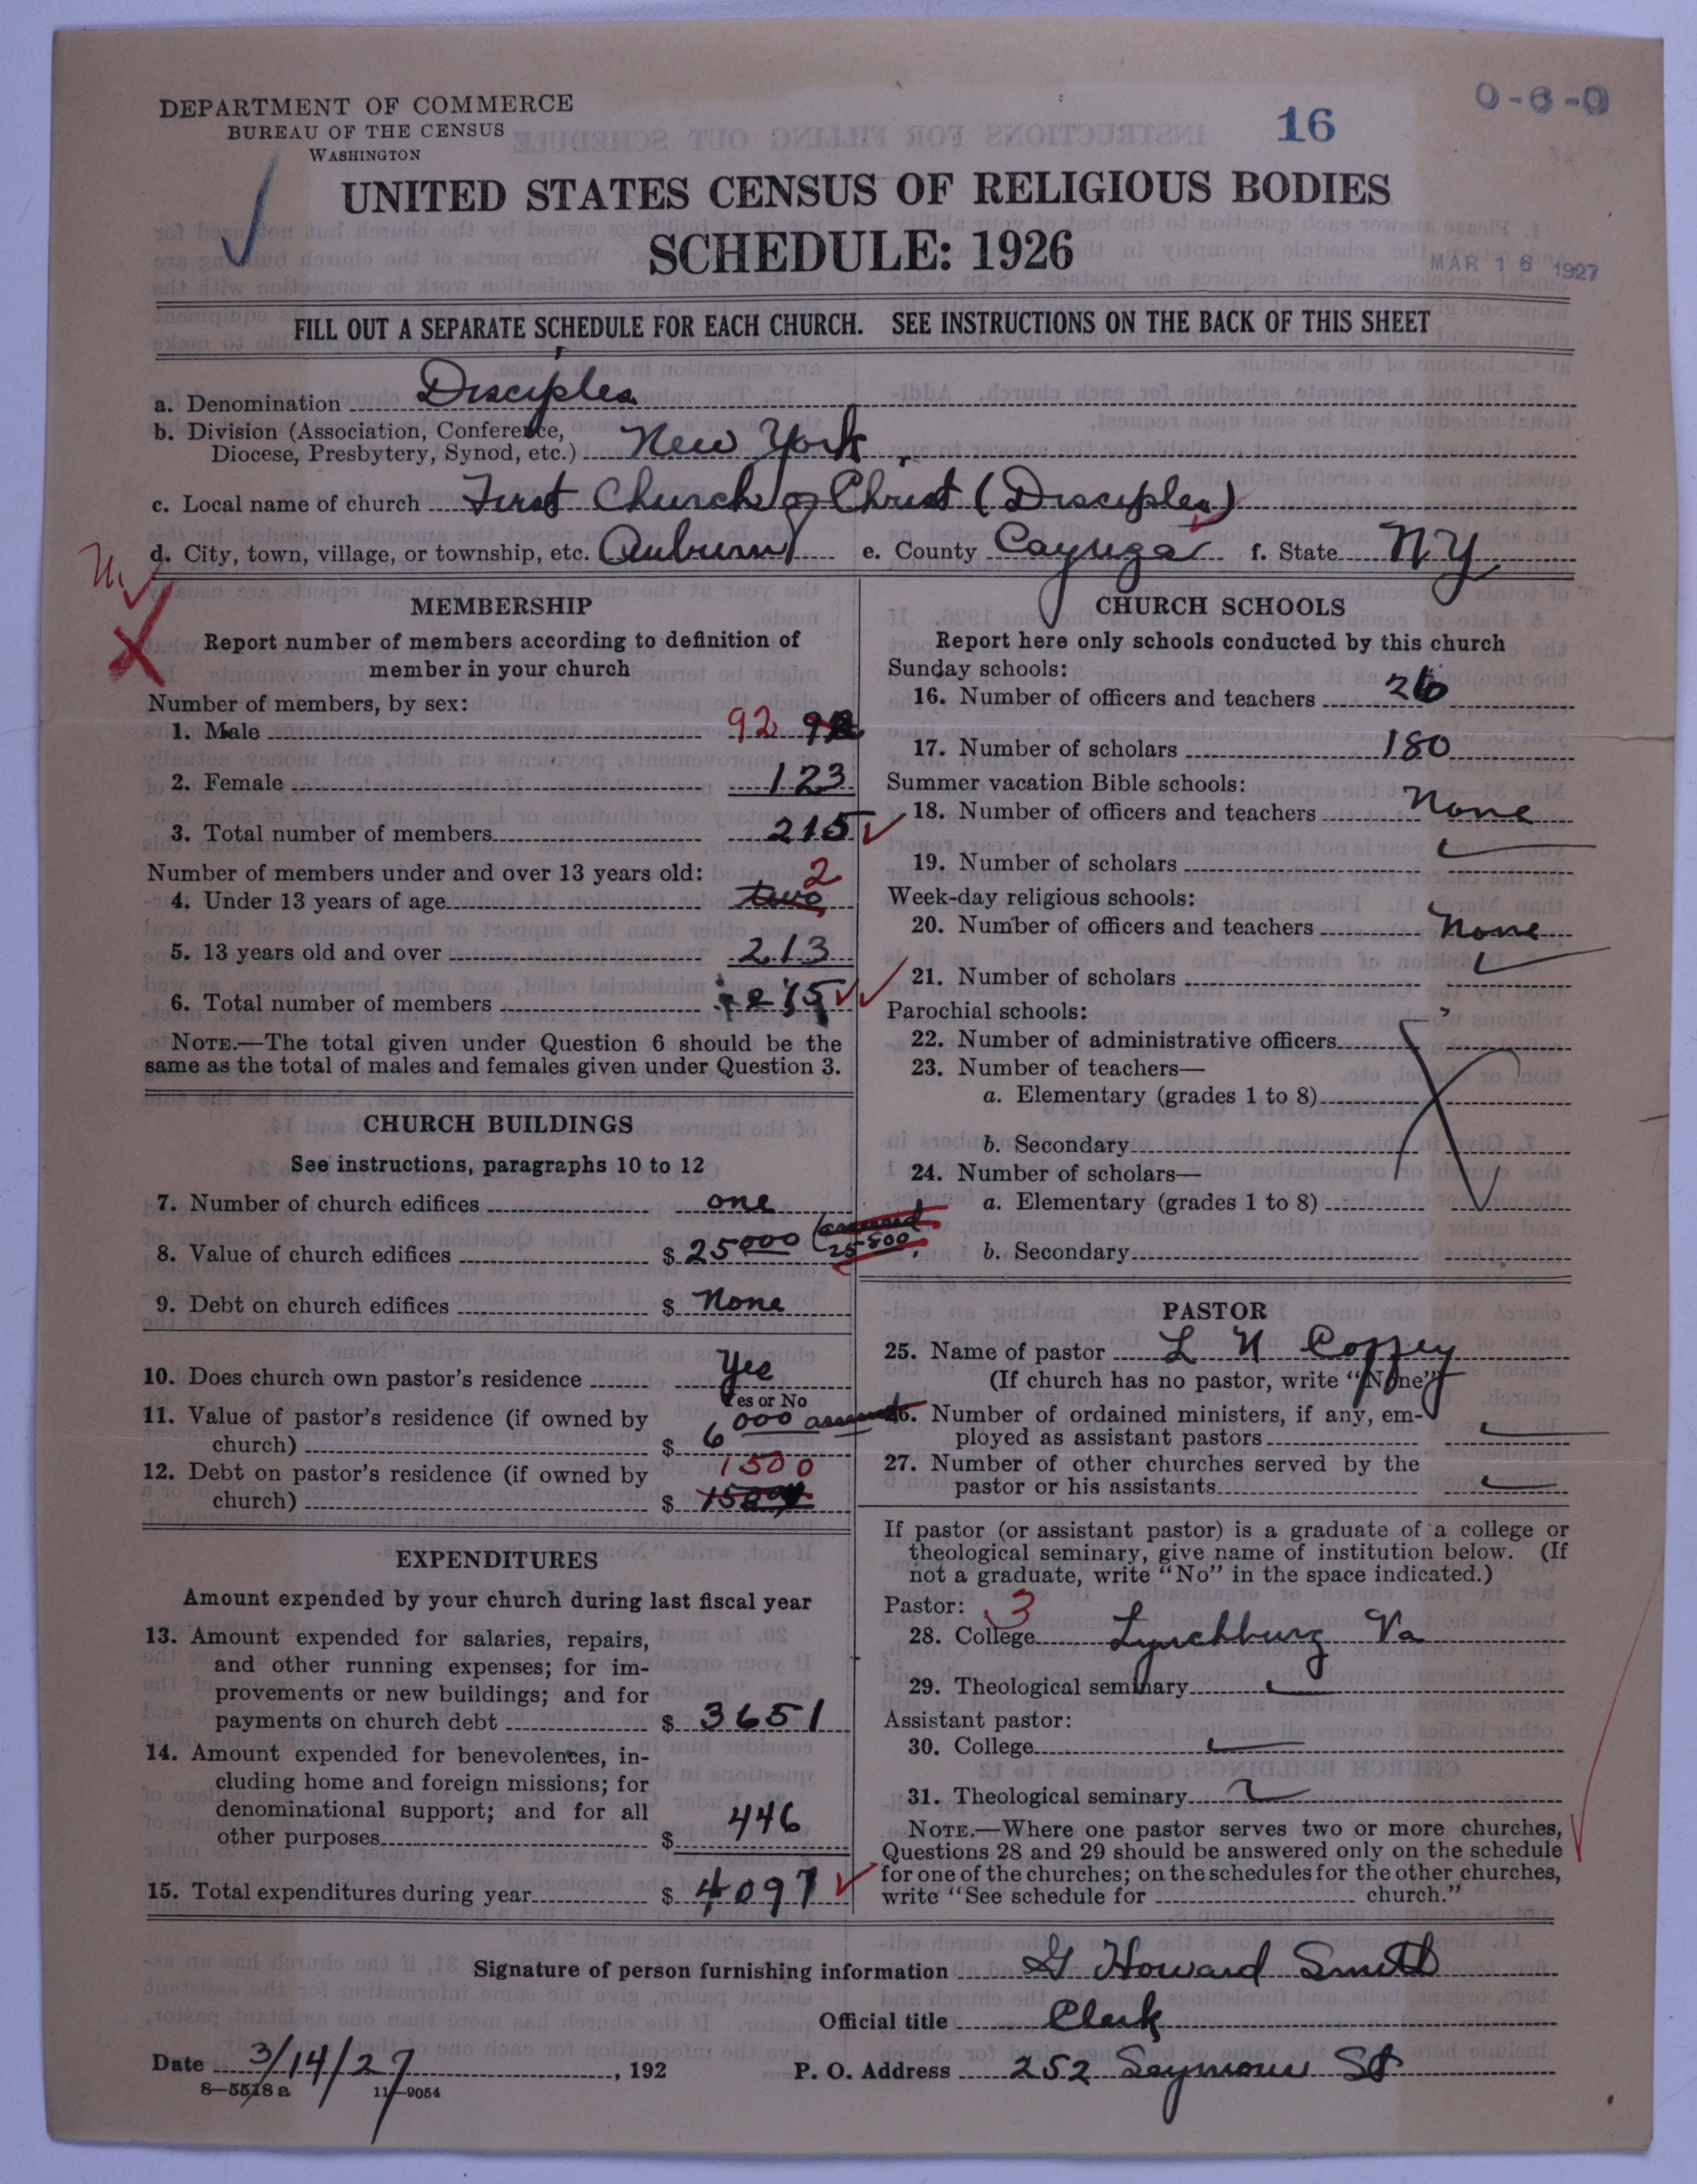 DEPARTMENT OF COMMERCE
BUREAU OF THE CENSUS
WASHINGTON
16
0-6-0
UNITED STATES CENSUS OF RELIGIOUS BODIES
SCHEDULE: 1926
MAR 16 1927
FILL OUT A SEPARATE SCHEDULE FOR EACH CHURCH. SEE INSTRUCTIONS ON THE BACK OF THIS SHEET
a. Denomination Disciples
b. Division (Association, Conference,
Diocese, Presbytery, Synod, etc.) New York
c. Local name of church First Church of Christ (Disciples)
d. City, town, village, or township, etc. Auburn e. County Cayuga f. State N.Y.
MEMBERSHIP
Report number of members according to definition of
member in your church
Number of members, by sex:
1. Male 92 92
2. Female 123
3. Total number of members 215
Number of members under and over 13 years old:
4. Under 13 years of age two 2
5. 13 years old and over 213
6. Total number of members 215
NOTE.—The total given under Question 6 should be the
same as the total of males and females given under Question 3.
CHURCH BUILDINGS
See instructions, paragraphs 10 to 12
7. Number of church edifices one
8. Value of church edifices $ 25000 (assessed
25800
9. Debt on church edifices $ None
10. Does church own pastor's residence Yes
Yes or No
11. Value of pastor's residence (if owned by
church) $ 6000
12. Debt on pastor's residence (if owned by
church) $ 1500
EXPENDITURES
Amount expended by your church during last fiscal year
13. Amount expended for salaries, repairs,
and other running expenses; for im-
provements or new buildings; and for
payments on church debt $ 3651
14. Amount expended for benevolences, in-
cluding home and foreign missions; for
denominational support; and for all
other purposes $ 446
15. Total expenditures during year $ 4097
CHURCH SCHOOLS
Report here only schools conducted by this church
Sunday schools:
16. Number of officers and teachers 26
17. Number of scholars 180
Summer vacation Bible schools:
18. Number of officers and teachers None
19. Number of scholars
Week-day religious schools:
20. Number of officers and teachers None
21. Number of scholars
Parochial schools:
22. Number of administrative officers
23. Number of teachers—
a. Elementary (grades 1 to 8)
b. Secondary
24. Number of scholars—
a. Elementary (grades 1 to 8)
b. Secondary
PASTOR
25. Name of pastor L N Coffey
(If church has no pastor, write "None")
26. Number of ordained ministers, if any, em-
ployed as assistant pastors
27. Number of other churches served by the
pastor or his assistants
If pastor (or assistant pastor) is a graduate of a college or
theological seminary, give name of institution below. (If
not a graduate, write "No" in the space indicated.)
Pastor: 3
28. College Lynchburg Va
29. Theological seminary
Assistant pastor:
30. College
31. Theological seminary
NOTE.—Where one pastor serves two or more churches,
Questions 28 and 29 should be answered only on the schedule
for one of the churches; on the schedules for the other churches,
write "See schedule for church."
Signature of person furnishing information G Howard Smith
Official title Clerk
Date 3/14/27, 192 P. O. Address 252 Seymour St
8—5518 a 11—9054